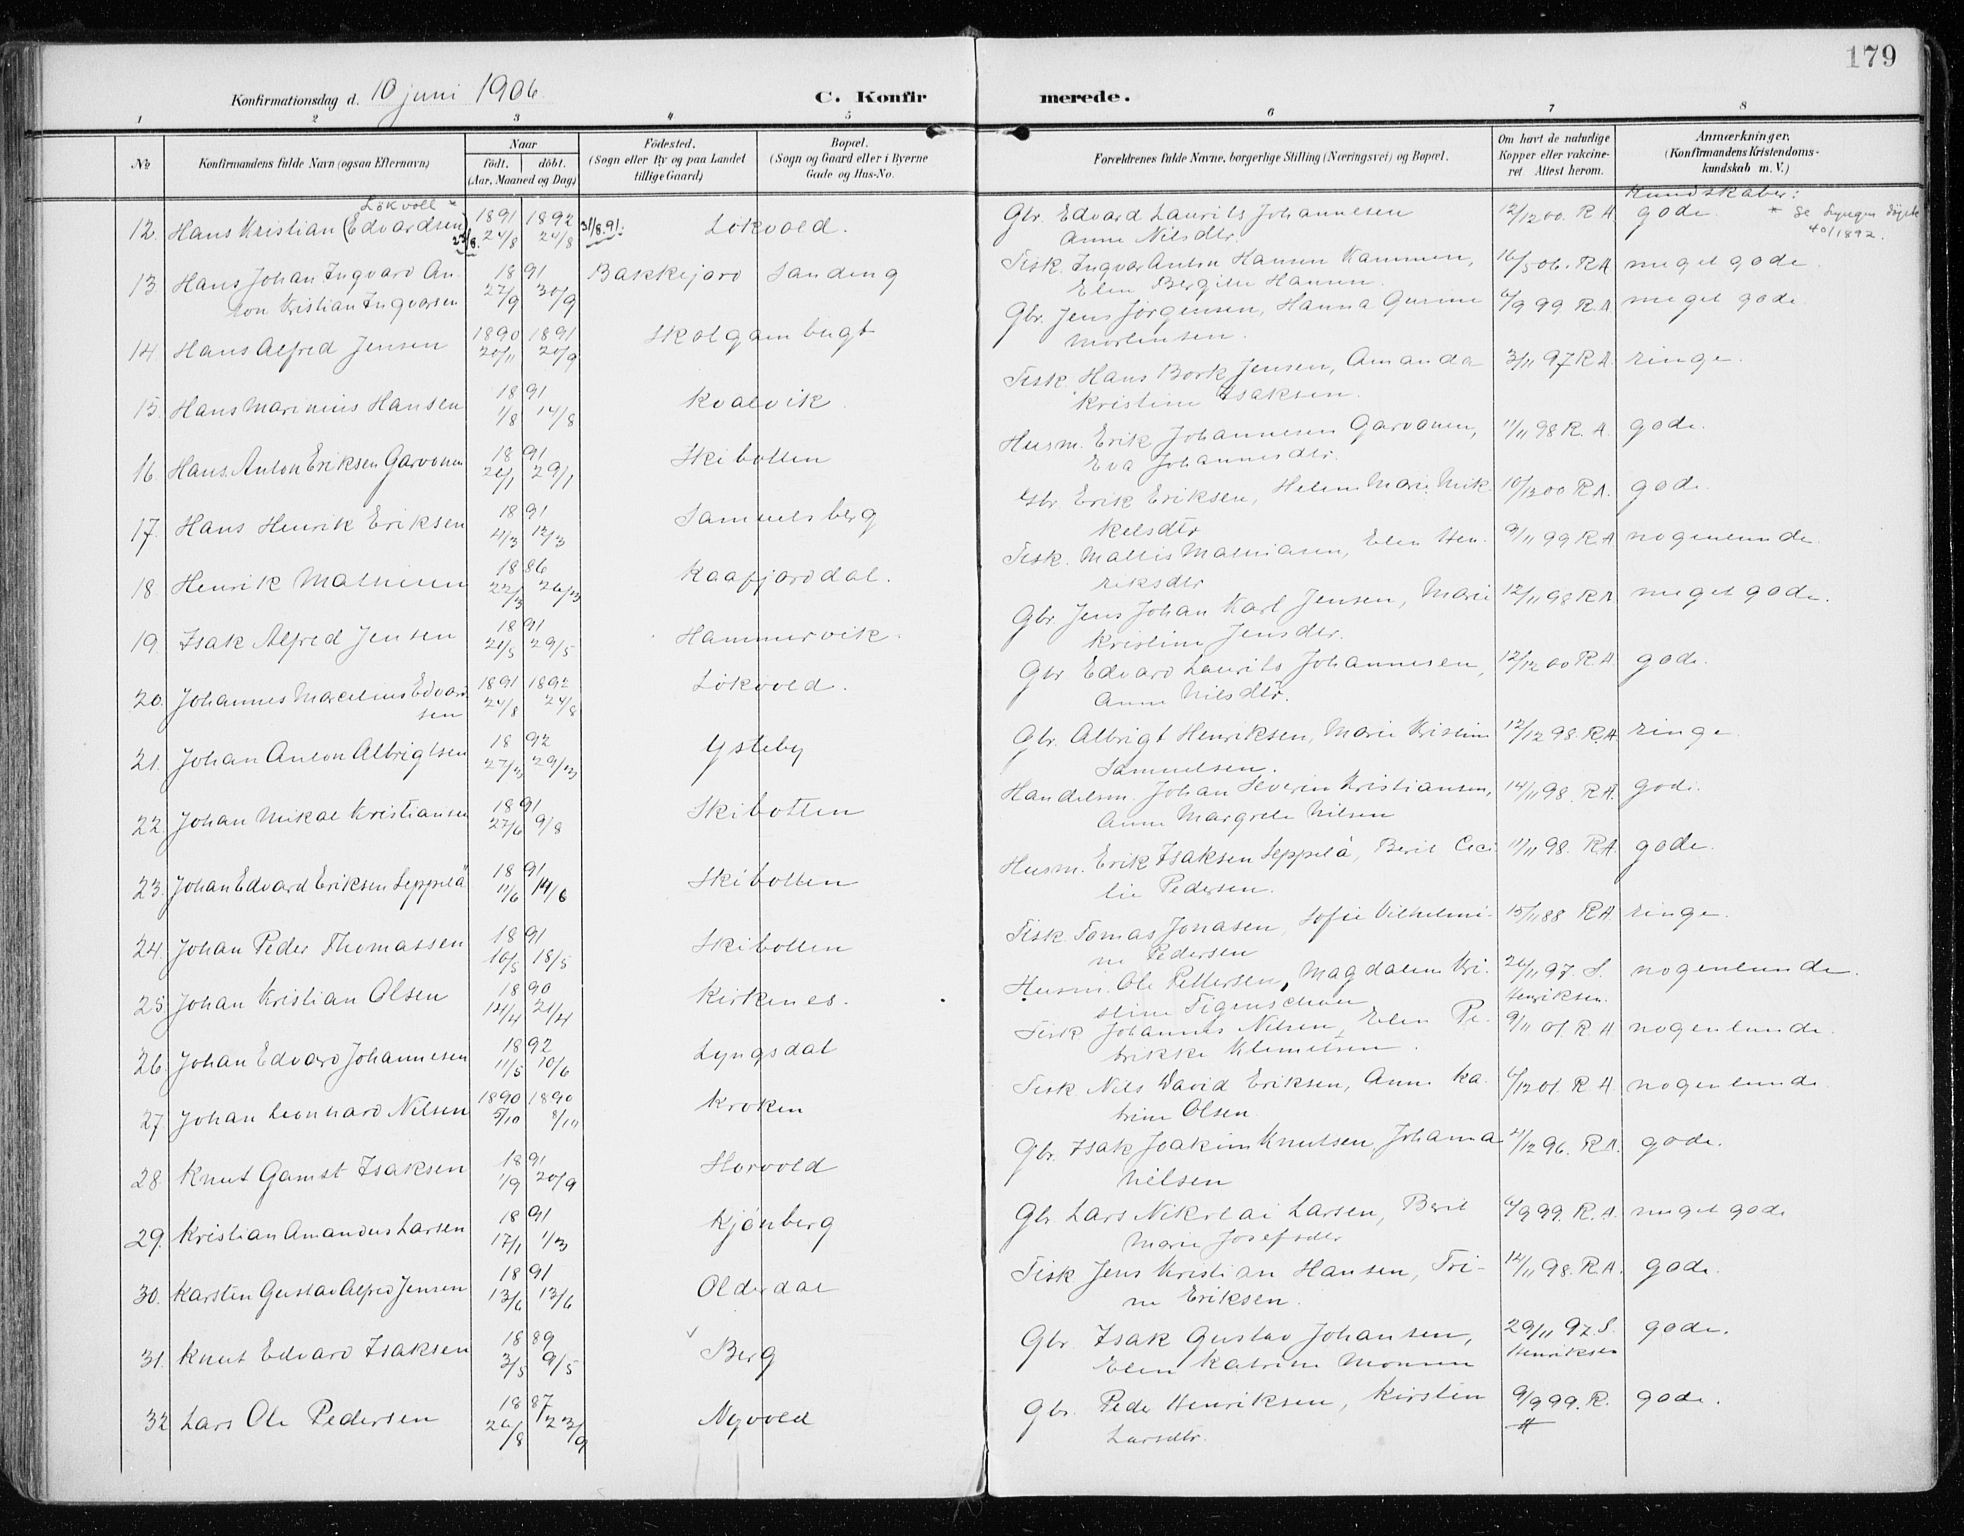 179
Konfirmationsdag d. 10 juni 1906.
C. Konfirmerede.
1 2 3 4 5 6 7 8
№
Konfirmandens fulde Navn (ogsaa Efternavn)
Naar
født. døbt.
(Aar, Maaned og Dag)
Fødested.
(Sogn eller By og paa Landet
tillige Gaard)
Bopæl.
(Sogn og Gaard eller i Byerne
Gade og Hus-No.
Forældrenes fulde Navne, borgerlige Stilling (Næringsvei) og Bopæl.
Om havt de naturlige
Kopper eller vakcine-
ret. Attest herom.
Anmærkninger.
(Konfirmandens Kristendoms-
kundskab m. V.)
Kundskaber:
Lökvoll *
12. Hans Kristian (Edvardsen) 1891 24/8 23/8. 1892 24/8 31/8.91. Lökvold. Gbr. Edvard Laurits Johannesen 12/12 00. R A. gode. * se Lyngen
Anne Nilsdtr. 40/1892.
13. Hans Johan Ingvard An- 1891 27/9 30/9 Bakkejord Sandeng Fisk. Ingvar Anton Hansen Kammen, 16/5 06. RA meget gode
ton Kristian Ingvarsen Elen Bergitte Hansen.
14. Hans Alfred Jensen 1890 20/11 1891 20/9 Skolgambugt Gbr. Jens Jørgensen, Hanna Gurine 6/9 99 R A. meget gode.
Mortensen.
15. Hans Marinius Hansen 1891 1/8 14/8 Kvalvik Fisk. Hans Bork Jensen, Amanda 3/11 97 R A. ringe.
Kristine Isaksen.
16. Hans Anton Eriksen Garvonen 1891 26/1 29/1 Skibotten Husm. Erik Johannesen Garvonen, 11/11 98 R. A. gode.
Eva Johannesdtr.
17. Hans Henrik Eriksen 1891 4/3 12/3 Samuelsberg Gbr. Erik Eriksen, Helene Marie Mik- 10/12 00 R A. gode.
kelsdtr
18. Henrik Mathisen 1886 22/12 26/12 Kaafjorddal. Fisk. Mattis Mathiasen, Elen Hen- 9/11 99 R A nogenlunde.
riksdtr
19. Isak Alfred Jensen 1891 21/5 29/5 Hammervik. Gbr Jens Johan Karl Jensen, Marie 12/11 98 R A meget gode.
Kristine Jensdtr.
20. Johannes Marcelius Edvard- 1891 24/8 1892 24/8 Lökvold. Gbr Edvard Laurits Johannesen, 12/12 00 R A. gode.
sen Anne Nilsdtr.
21. Johan Anton Albrigtsen 1892 27/3 29/3 Ysteby Gbr. Albrigt Henriksen, Marie Kristine 12/12 98. R.A. ringe
Samuelsen.
22. Johan Mikal Kristiansen 1891 27/6 9/8 Skibotten Handelsm. Johan Severin Kristiansen, 14/11 98. R.A. gode.
Anne Margrete Nilsen
23. Johan Edvard Eriksen Seppelä 1891 11/6 14/6 Skibotten Husm. Erik Isaksen Seppelä, Berit Ceci- 11/11 98. R.A. gode.
lie Pedersen.
24. Johan Peder Thomassen 1891 16/5 18/5 Skibotten Fisk. Tomas Jonasen, Sofie Vilhelmi- 15/11 88 R A ringe.
ne Pedersen
25. Johan Kristian Olsen 1890 14/4 21/4 Kirkenes. Husm. Ole Pettersen, Magdalene Kri- 26/11 97. S. nogenlunde.
stine Figenschau Henriksen.
26. Johan Edvard Johannesen 1892 11/5 10/6 Lyngsdal Fisk Johannes Nilsen, Elen Pe- 9/11 01. R. A nogenlunde.
trikke Klemetsen.
27. Johan Leonhard Nilsen 1890 5/10 1890 8/11 Kroken Fisk Nils David Eriksen, Anne Ka- 6/12 01. R A. nogenlunde
trine Olsen.
28. Knut Gamst Isaksen 1891 1/9 20/9 Horvold Gbr. Isak Joakim Knutsen, Johanna 4/12 96. R A. gode.
Nielsen
29. Kristian Amandus Larsen 1891 17/1 1/3 Kjönberg Gbr. Lars Nikolai Larsen, Berit 6/9 99. R. A. meget gode
Marie Josefsdtr
30. Karsten Gustav Alfred Jensen 1891 13/6 13/6 Olderdal Fisk Jens Kristian Hansen, Tri- 14/11 98. R. A. gode.
ne Eriksen.
31. Knut Edvard Isaksen 1889 3/5 9/5 Berg Gbr. Isak Gustav Johansen, 29/11 97. S. gode.
Elen Katrine Monsen Henriksen
32 Lars Ole Pedersen 1887 26/8 23/9 Nyvold Gbr. Peder Henriksen, Kirsten 9/9 99. R. gode.
Larsdtr. A